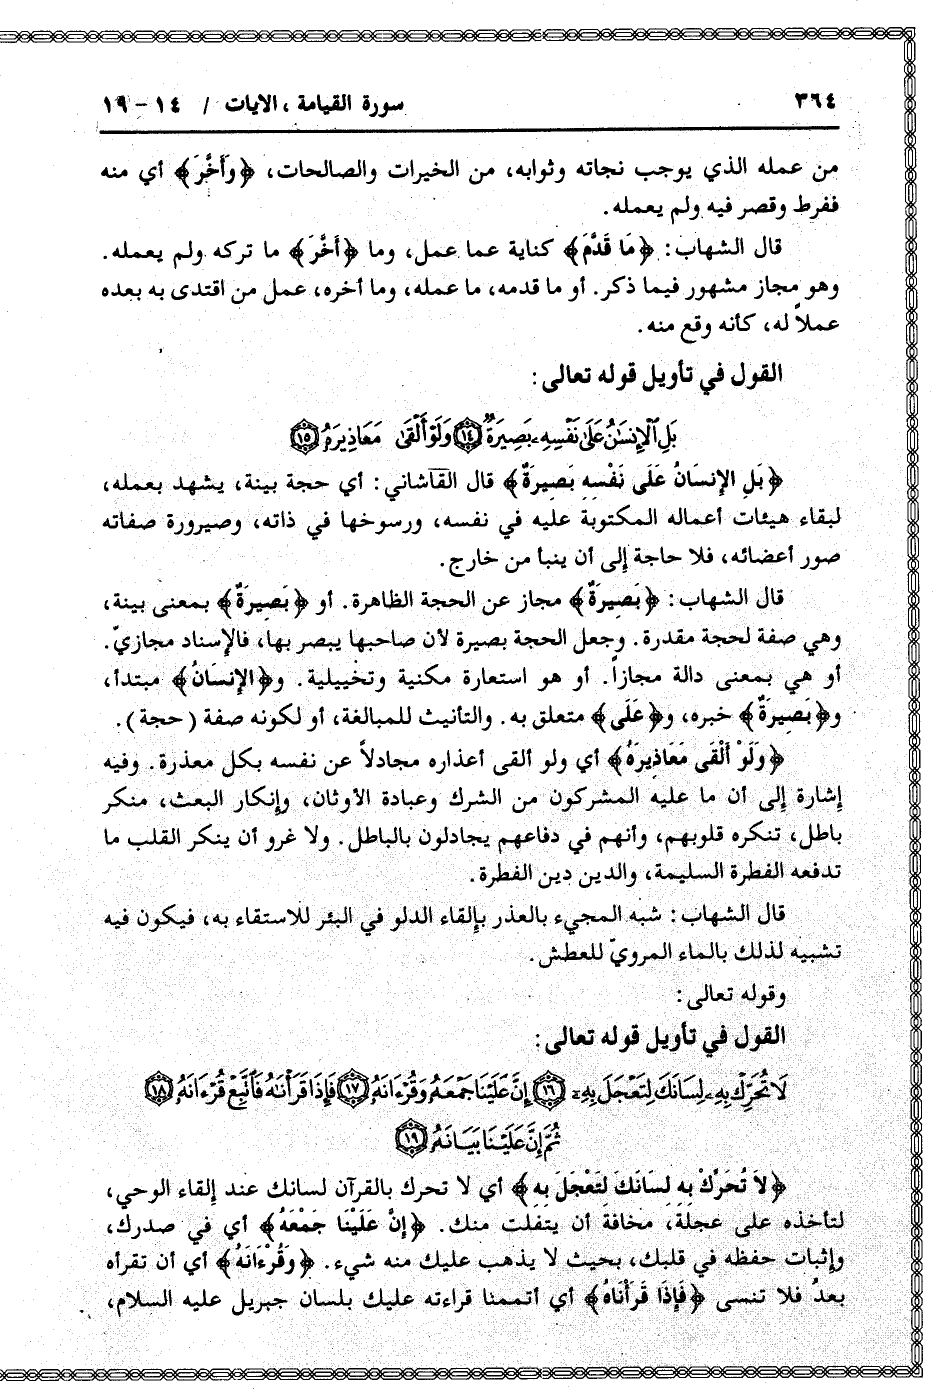 ٣٦٤
سورة القيامة ، الآيات / ١٤ - ١٩
من عمله الذي يوجب نجاته وثوابه، من الخيرات والصالحات، ﴿وَأَخَّرَ﴾ أي منه
ففرط وقصر فيه ولم يعمله.
قال الشهاب: ﴿مَا قَدَّمَ﴾ كناية عما عمل، وما ﴿أَخَّرَ﴾ ما تركه ولم يعمله.
وهو مجاز مشهور فيما ذكر. أو ما قدمه، ما عمله، وما أخره، عمل من اقتدى به بعده
عملاً له، كأنه وقع منه.
القول في تأويل قوله تعالى:
بَلِ ٱلْإِنسَٰنُ عَلَىٰ نَفْسِهِۦ بَصِيرَةٌ ١٤ وَلَوْ أَلْقَىٰ مَعَاذِيرَهُۥ ١٥
﴿بَلِ الإِنسَانُ عَلَى نَفْسِهِ بَصِيرَةٌ﴾ قال القاشاني: أي حجة بينة، يشهد بعمله،
لبقاء هيئات أعماله المكتوبة عليه في نفسه، ورسوخها في ذاته، وصيرورة صفاته
صور أعضائه، فلا حاجة إلى أن ينبأ من خارج.
قال الشهاب: ﴿بَصِيرَةٌ﴾ مجاز عن الحجة الظاهرة. أو ﴿بَصِيرَةٌ﴾ بمعنى بينة،
وهي صفة لحجة مقدرة. وجعل الحجة بصيرة لأن صاحبها يبصر بها، فالإسناد مجازيّ.
أو هي بمعنى دالة مجازاً. أو هو استعارة مكنية وتخييلية. و﴿الإِنسَانُ﴾ مبتدأ،
و﴿بَصِيرَةٌ﴾ خبره، و﴿عَلَى﴾ متعلق به. والتأنيث للمبالغة، أو لكونه صفة (حجة).
﴿وَلَوْ أَلْقَى مَعَاذِيرَهُ﴾ أي ولو ألقى أعذاره مجادلاً عن نفسه بكل معذرة. وفيه
إشارة إلى أن ما عليه المشركون من الشرك وعبادة الأوثان، وإنكار البعث، منكر
باطل، تنكره قلوبهم، وأنهم في دفاعهم يجادلون بالباطل. ولا غرو أن ينكر القلب ما
تدفعه الفطرة السليمة، والدين دين الفطرة.
قال الشهاب: شبه المجيء بالعذر بإلقاء الدلو في البئر للاستقاء به، فيكون فيه
تشبيه لذلك بالماء المرويّ للعطش.
وقوله تعالى:
القول في تأويل قوله تعالى:
لَا تُحَرِّكْ بِهِۦ لِسَانَكَ لِتَعْجَلَ بِهِۦٓ ١٦ إِنَّ عَلَيْنَا جَمْعَهُۥ وَقُرْءَانَهُۥ ١٧ فَإِذَا قَرَأْنَٰهُ فَٱتَّبِعْ قُرْءَانَهُۥ ١٨
ثُمَّ إِنَّ عَلَيْنَا بَيَانَهُۥ ١٩
﴿لاَ تُحَرِّكْ بِهِ لِسَانَكَ لِتَعْجَلَ بِهِ﴾ أي لا تحرك بالقرآن لسانك عند إلقاء الوحي،
لتأخذه على عجلة، مخافة أن يتفلت منك. ﴿إِنَّ عَلَيْنَا جَمْعَهُ﴾ أي في صدرك،
وإثبات حفظه في قلبك، بحيث لا يذهب عليك منه شيء. ﴿وَقُرْءَانَهُ﴾ أي أن تقرأه
بعدُ فلا تنسى ﴿فَإِذَا قَرَأْنَاهُ﴾ أي أتممنا قراءته عليك بلسان جبريل عليه السلام،